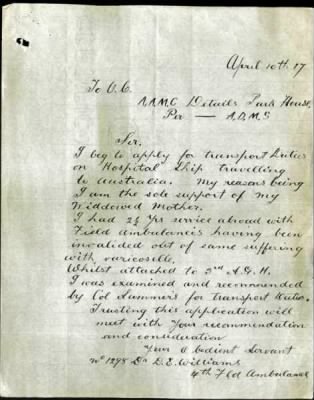 April 10th 17
To O.C.
A.A.M.C Details Park House,
Per — A.D.M.S
Sir.
I beg to apply for transport Duties
on Hospital Ship travelling
to Australia. My reasons being
I am the sole support of my
Widdowed Mother.
I had 2½ Yrs service abroad with
Field Ambulances having been
invalided out of same suffering
with varicocelle.
Whilst attached to 2nd A.G.H.
I was examined and recommended
by Col Summers for transport duties.
Trusting this application will
meet with Your recommendation
and consideration
Your Obedient Servant
No 1298 Dr D.E. Williams
4th Fld Ambulance